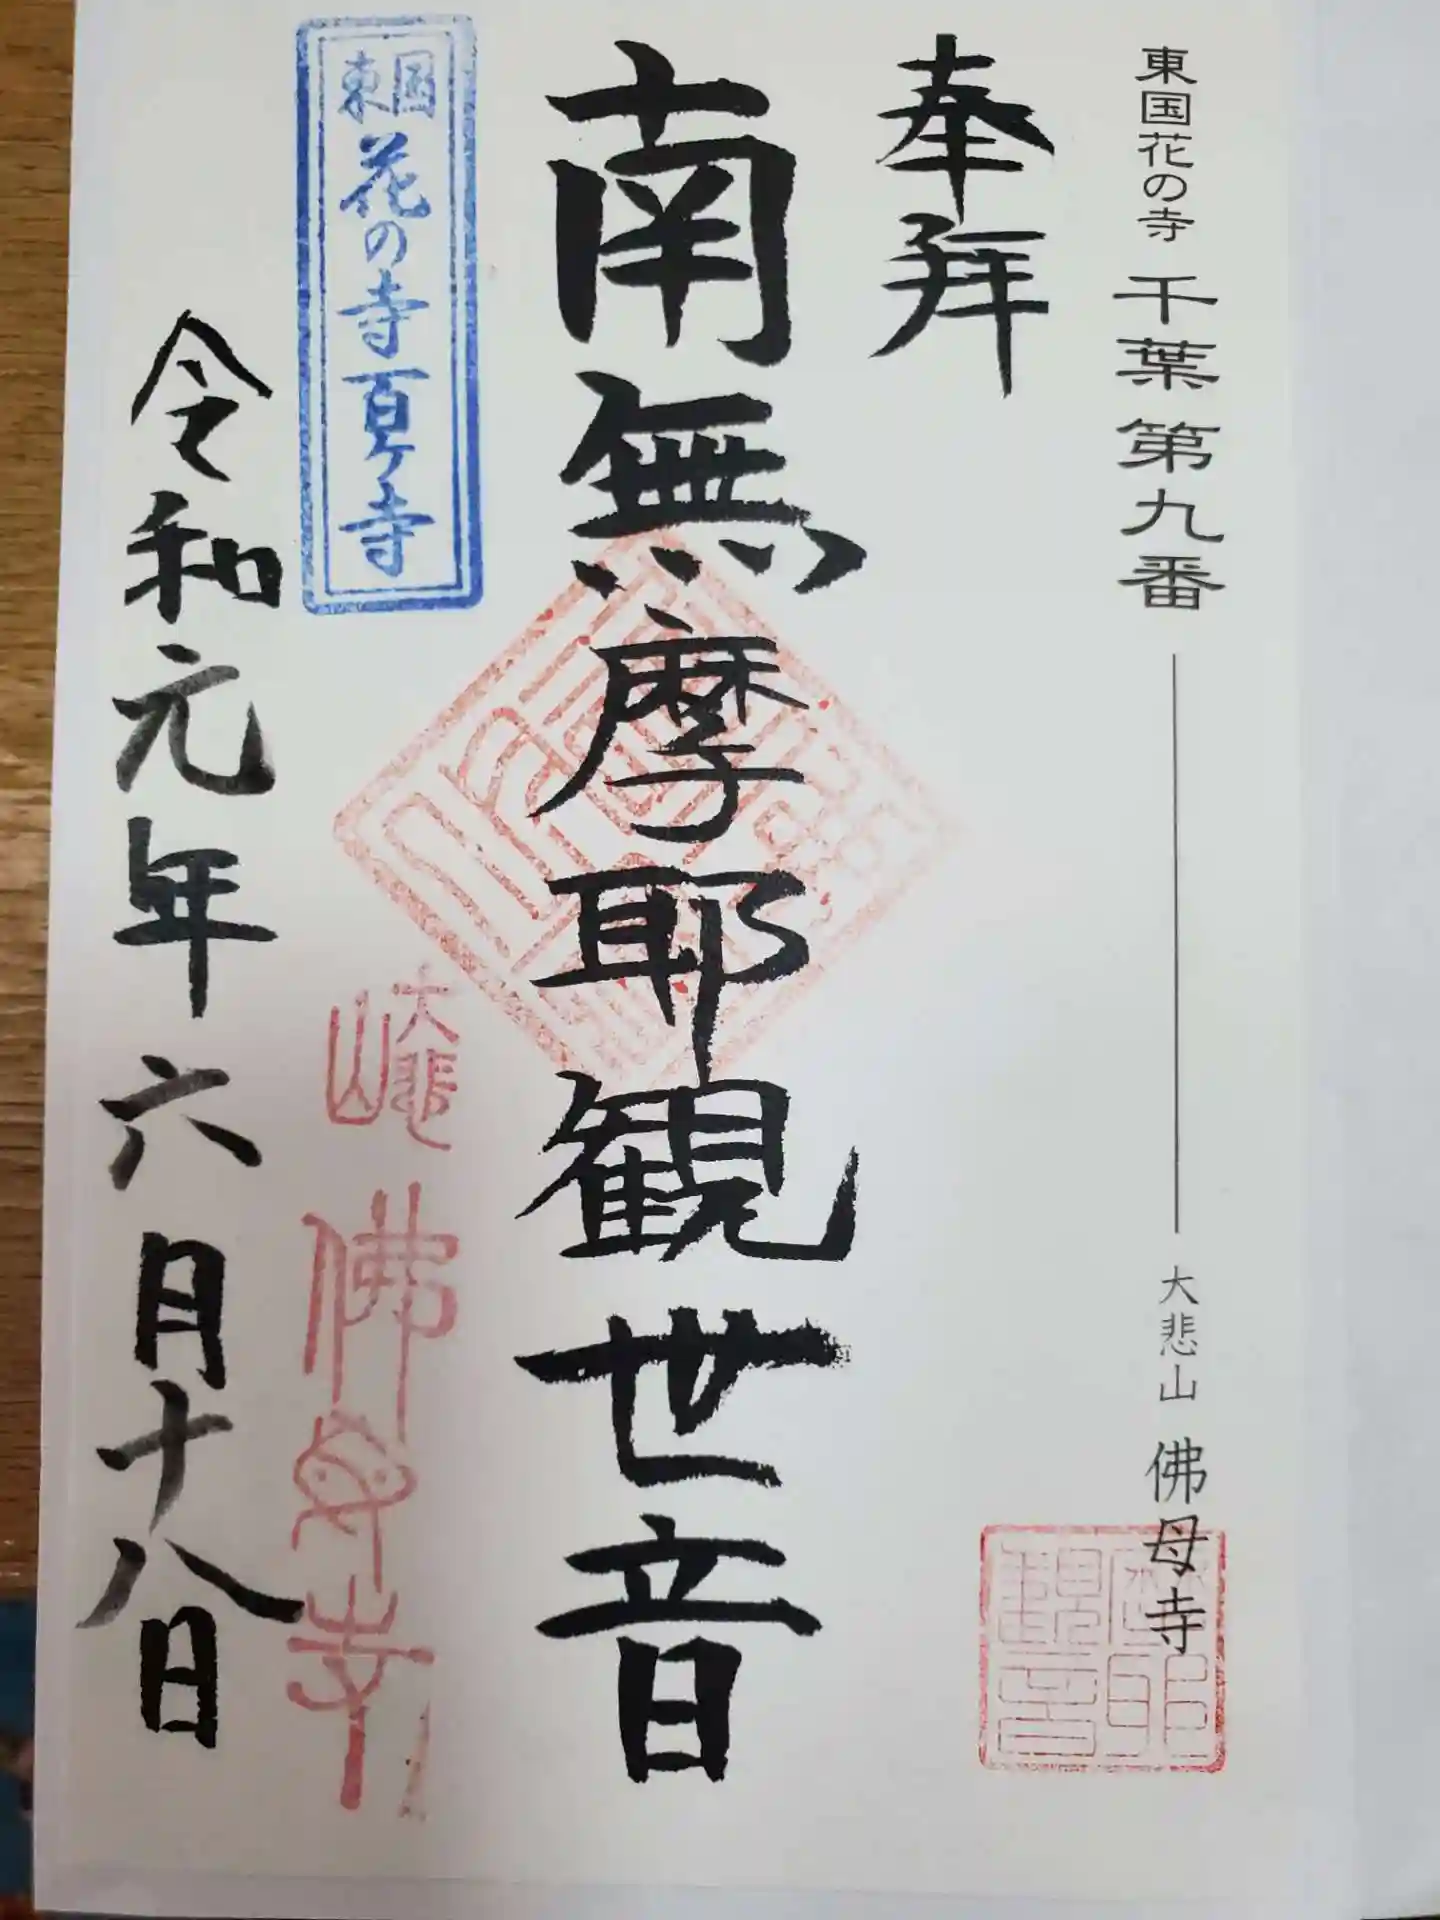 東国花の寺 千葉第九番 大悲山 佛母寺
摩耶
観音
奉拝
南無摩耶観世音
東国花の寺百ヶ寺
大悲山
佛母寺
令和元年六月十八日